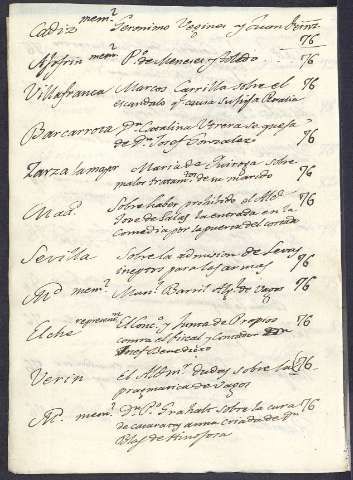 Cadiz mem.l Geronimo Veginer y Juan 76
Ajofrin mem.l P.o de Meneses y Toledo 76
Villafranca Marcos Carrilla sobre el 76
escandalo q.e causa su hija Rosalia
Barcarrota D.a Catalina Utrera se quefa 76
de D.n Josef Gonzalez
Zarza la mayor Maria de Quirosa sobre 76
malos tratam.tos de su marido
Mad. Sobre haber prohibido al M.o 76
Jose de Salas la entrada en la
comedia por la puerta del corral
Sevilla Sobre la admision de Levas 76
ineptos para las armas
M.d mem.l Man.l Barril Alg.l de Vagos 76
Elche represent.n El Conc.o y Junta de Propios 76
contra el fiscal y Contador
Josef Benedicto
Verin El Alc. m.r dudas sobre la 76
pragmatica de Vagos
M. mem.l D.n P.o sobre la cura 76
de caracas y a una criada de D.n
Blas de Hinojosa